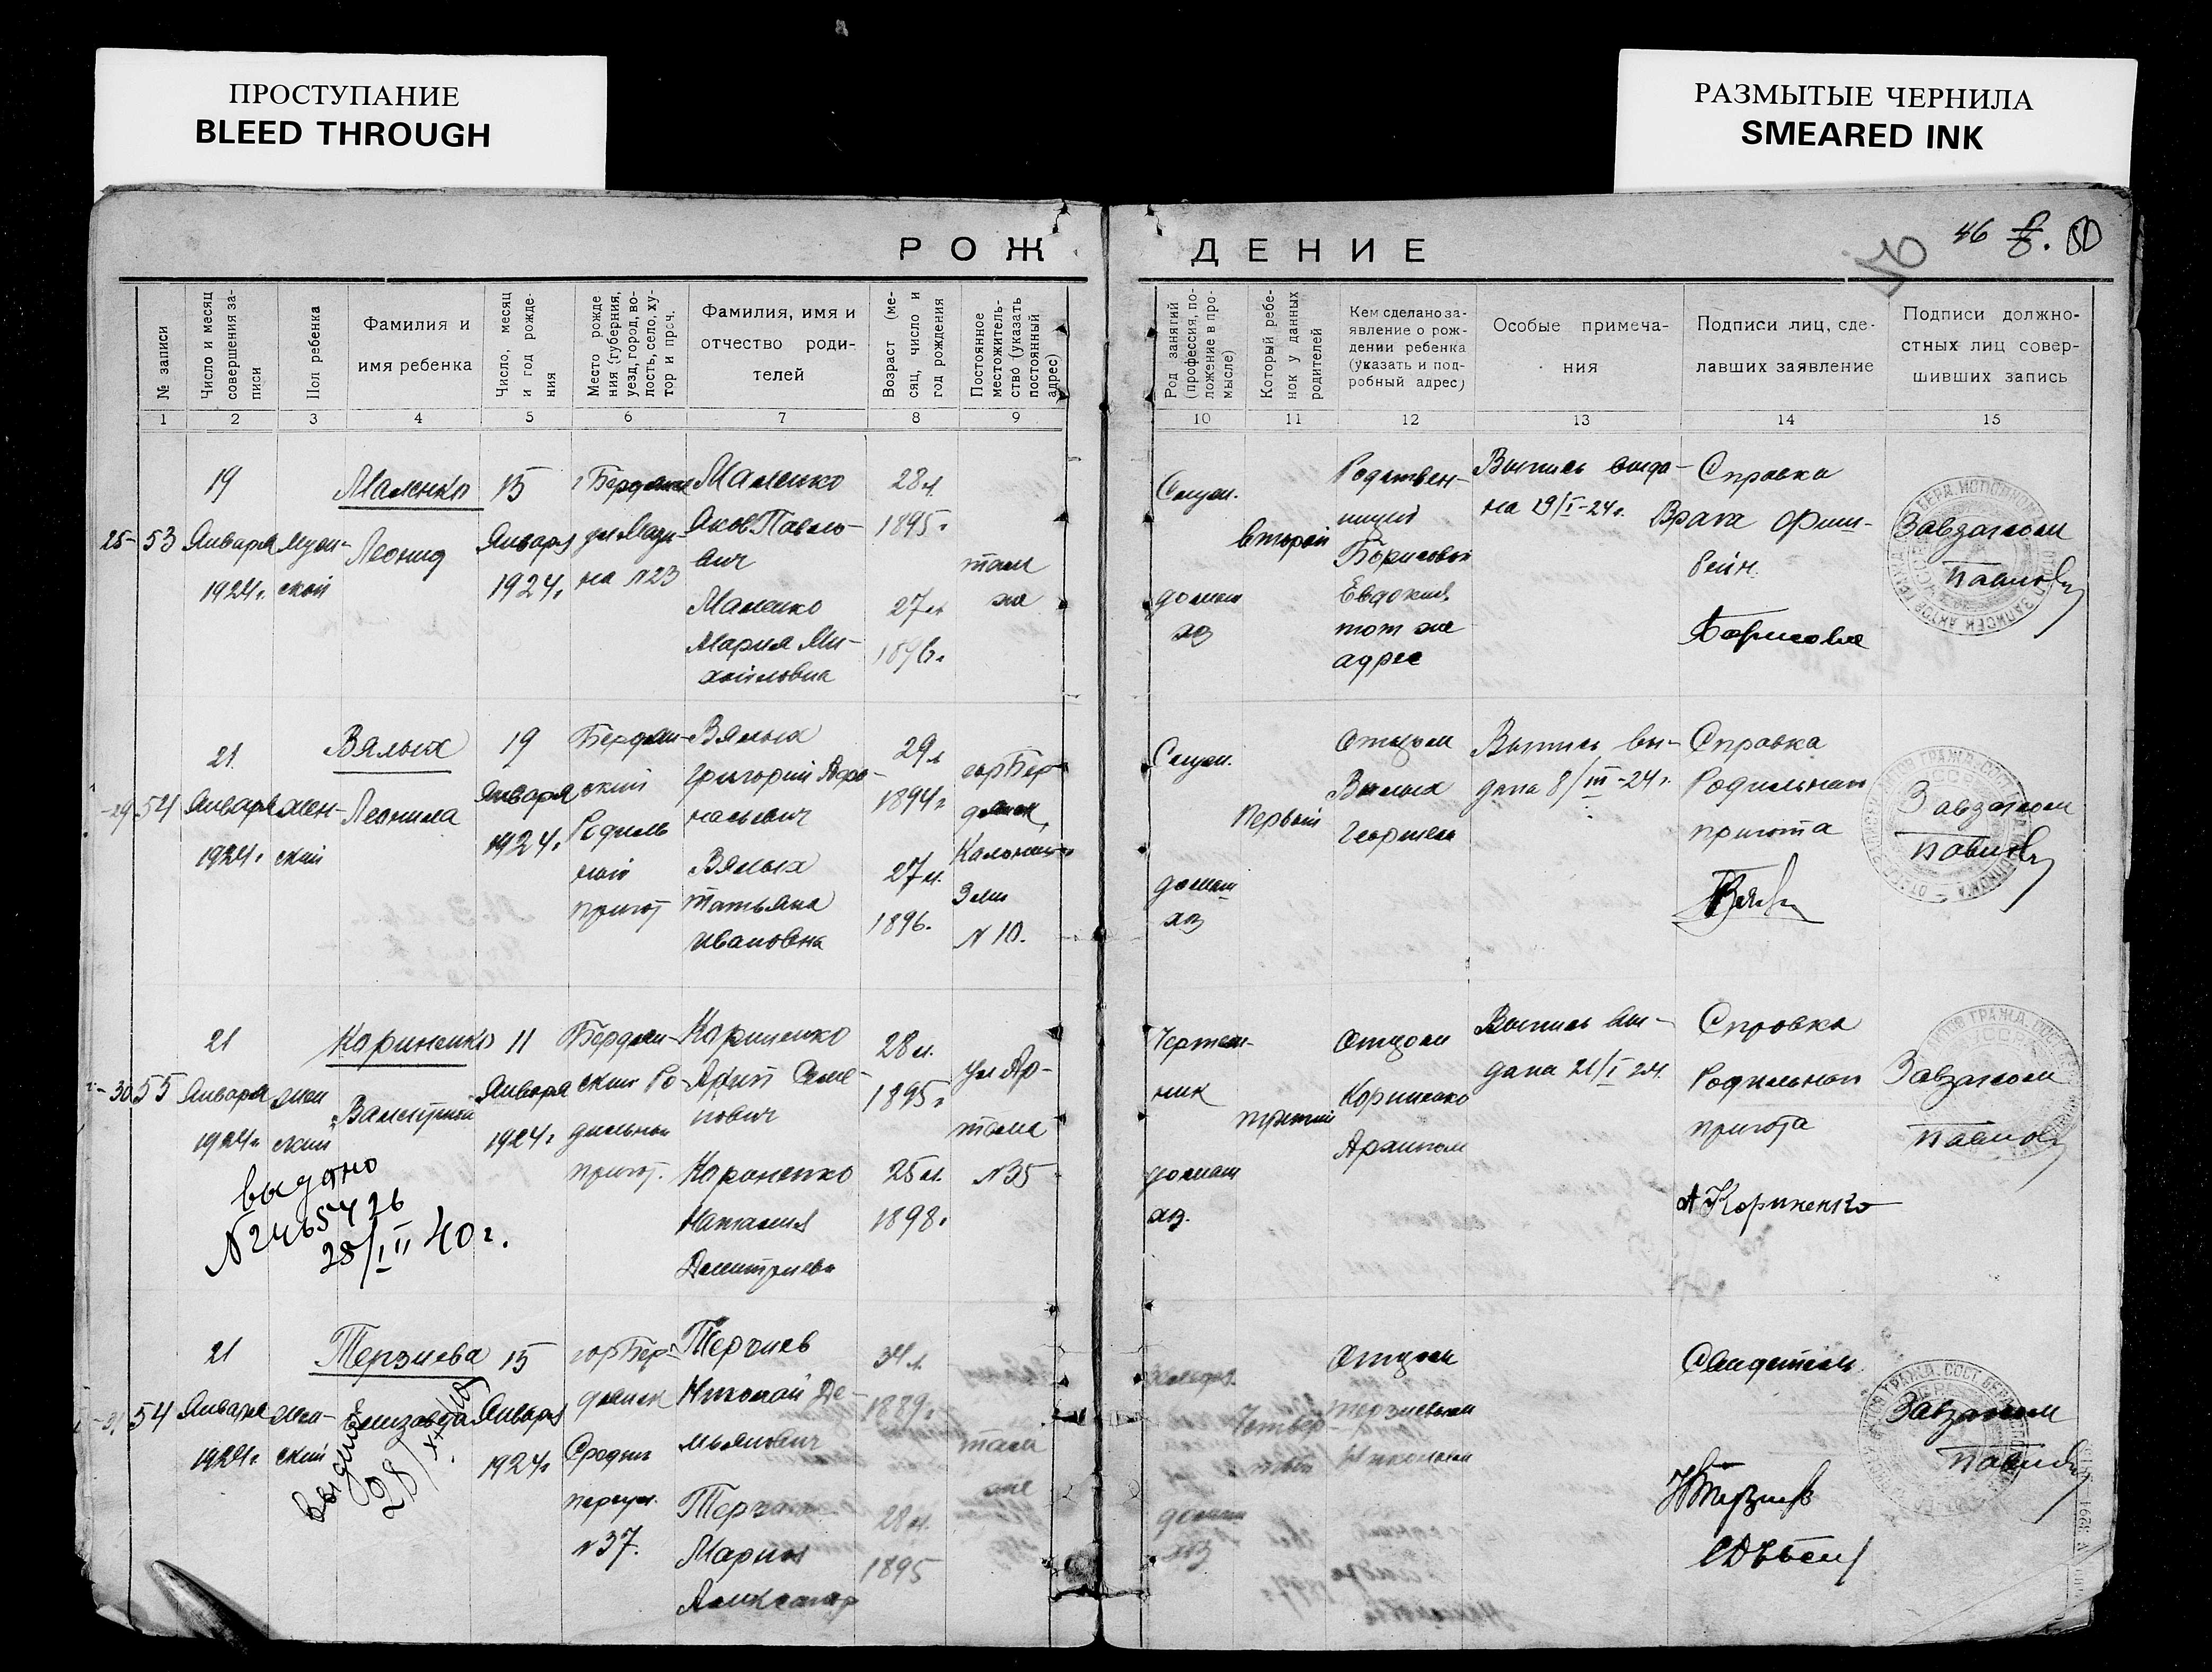 ПРОСТУПАНИЕ
BLEED THROUGH
РАЗМЫТЫЕ ЧЕРНИЛА
SMEARED INK
46
РОЖДЕНИЕ
№ записи
Число и месяц совершения за-
писи
Пол ребенка
Фамилия и
имя ребенка
Число, месяц
и год рожде-
ния
Место рожде
ния (губерния,
уезд, город, во-
лость, село, ху-
тор и проч.
Фамилия, имя и
отчество роди-
телей
Возраст (ме-
сяц, число и
год рождения
Постоянное
местожитель-
ство (указать
постоянный
адрес)
Род занятий
(профессия, по-
ложение в про-
мысле)
Который ребе-
нок у данных
родителей
Кем сделано за-
явление о рож-
дении ребенка
(указать и под-
робный адрес)
Особые примеча-
ния
Подписи лиц, сде-
лавших заявление
Подписи должно-
стных лиц совер-
шивших запись
1 2 3 4 5 6 7 8 9 10 11 12 13 14 15
53
19
Января
1924г.
муж-
ской
Маленко
Леонид
15
Января
1924г.
№23
Маленко
Яков Павло-
вич
Маленко
Мария Ми-
хайловна
28л.
1895г.
27л.
1896г.
там
же
Служ.
домаш
хоз
второй
Родствен-
ницей
Борисовой
Евдокией
тот же
адрес
Выпись выда-
на 19/I-24г.
Справка
Врача Фин-
вейн.
Борисова
Завзагсом
Павлов
29 54
21
Января
1924г.
жен-
ский
Вялых
Леонила
19
Января
1924г.
Бердян-
ский
Родиль
ный
приют
Вялых
Григорий Афа-
насьевич
Вялых
Татьяна
Ивановна
29л
1894г.
27л.
1896.
гор Бер-
дянск,
N 10.
Служ.
домаш
хоз
Первый
Отцом
Вялых
Выпись вы-
дана 8/III-24г.
Справка
Родильнаго
приюта
Завзагсом
Павлов
30 55
21
Января
1924г.
жен
ский
Кориненко
11
Января
1924г.
Бердян-
ский Ро-
дильный
приют.
Кориненко
Архип Семе-
нович
Кориненко
Наталия
Дмитриевн
28л.
1895г.
25л.
1898г.
ул Ар-
тема
N35
Чертеж-
ник
домаш
хоз.
третий
Отцом
Кориненко
Архипом
Выпись вы-
дана 21/I 24.
Справка
Родильнаго
приюта
А Кориненко
Завзагсом
Павлов
выдано
N2465426
40г.
54
21
Января
1924г.
жен-
ский
Терзиева
Елизавета
15
Января
1924г.
гор Бер-
дянск
переул.
N37.
Терзиев
Николай Де-
мьянович
Мария
Александр
34л.
1889г.
28л.
1895
там
же
домаш
хоз
Четвер-
тый
Отцом
Терзиевым
Николаем
Свидетели
Завзагсом
Павлов